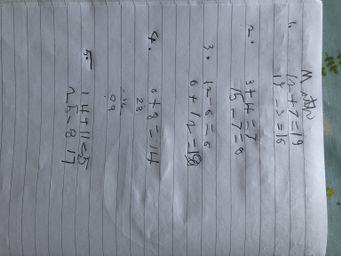 Math
1.
12 + 7 = 19
19 - 3 = 16
2.
3 + 4 = 7
15 - 7 = 8
3.
12 - 6 = 6
6 + 12 = 18
4.
6 + 8 = 14
23
09
5.
14 + 11 = 25
25 - 8 = 17